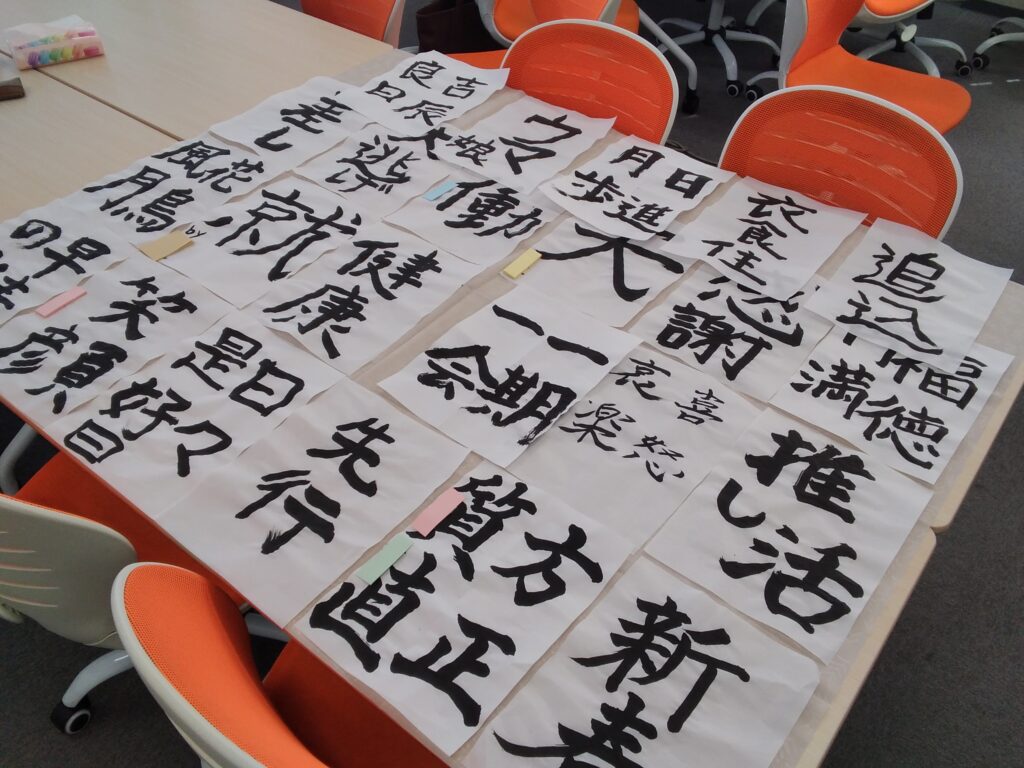 吉辰
良日
差し
大
逃げ
ウマ
娘
日進
月歩
衣食住
追込
花鳥
風月
by
就
働
大
謝
福徳
満
早
の
笑
顔
健康
一期
一会
喜怒
哀楽
推し活
日々
是好
日
先行
方正
質直
新春